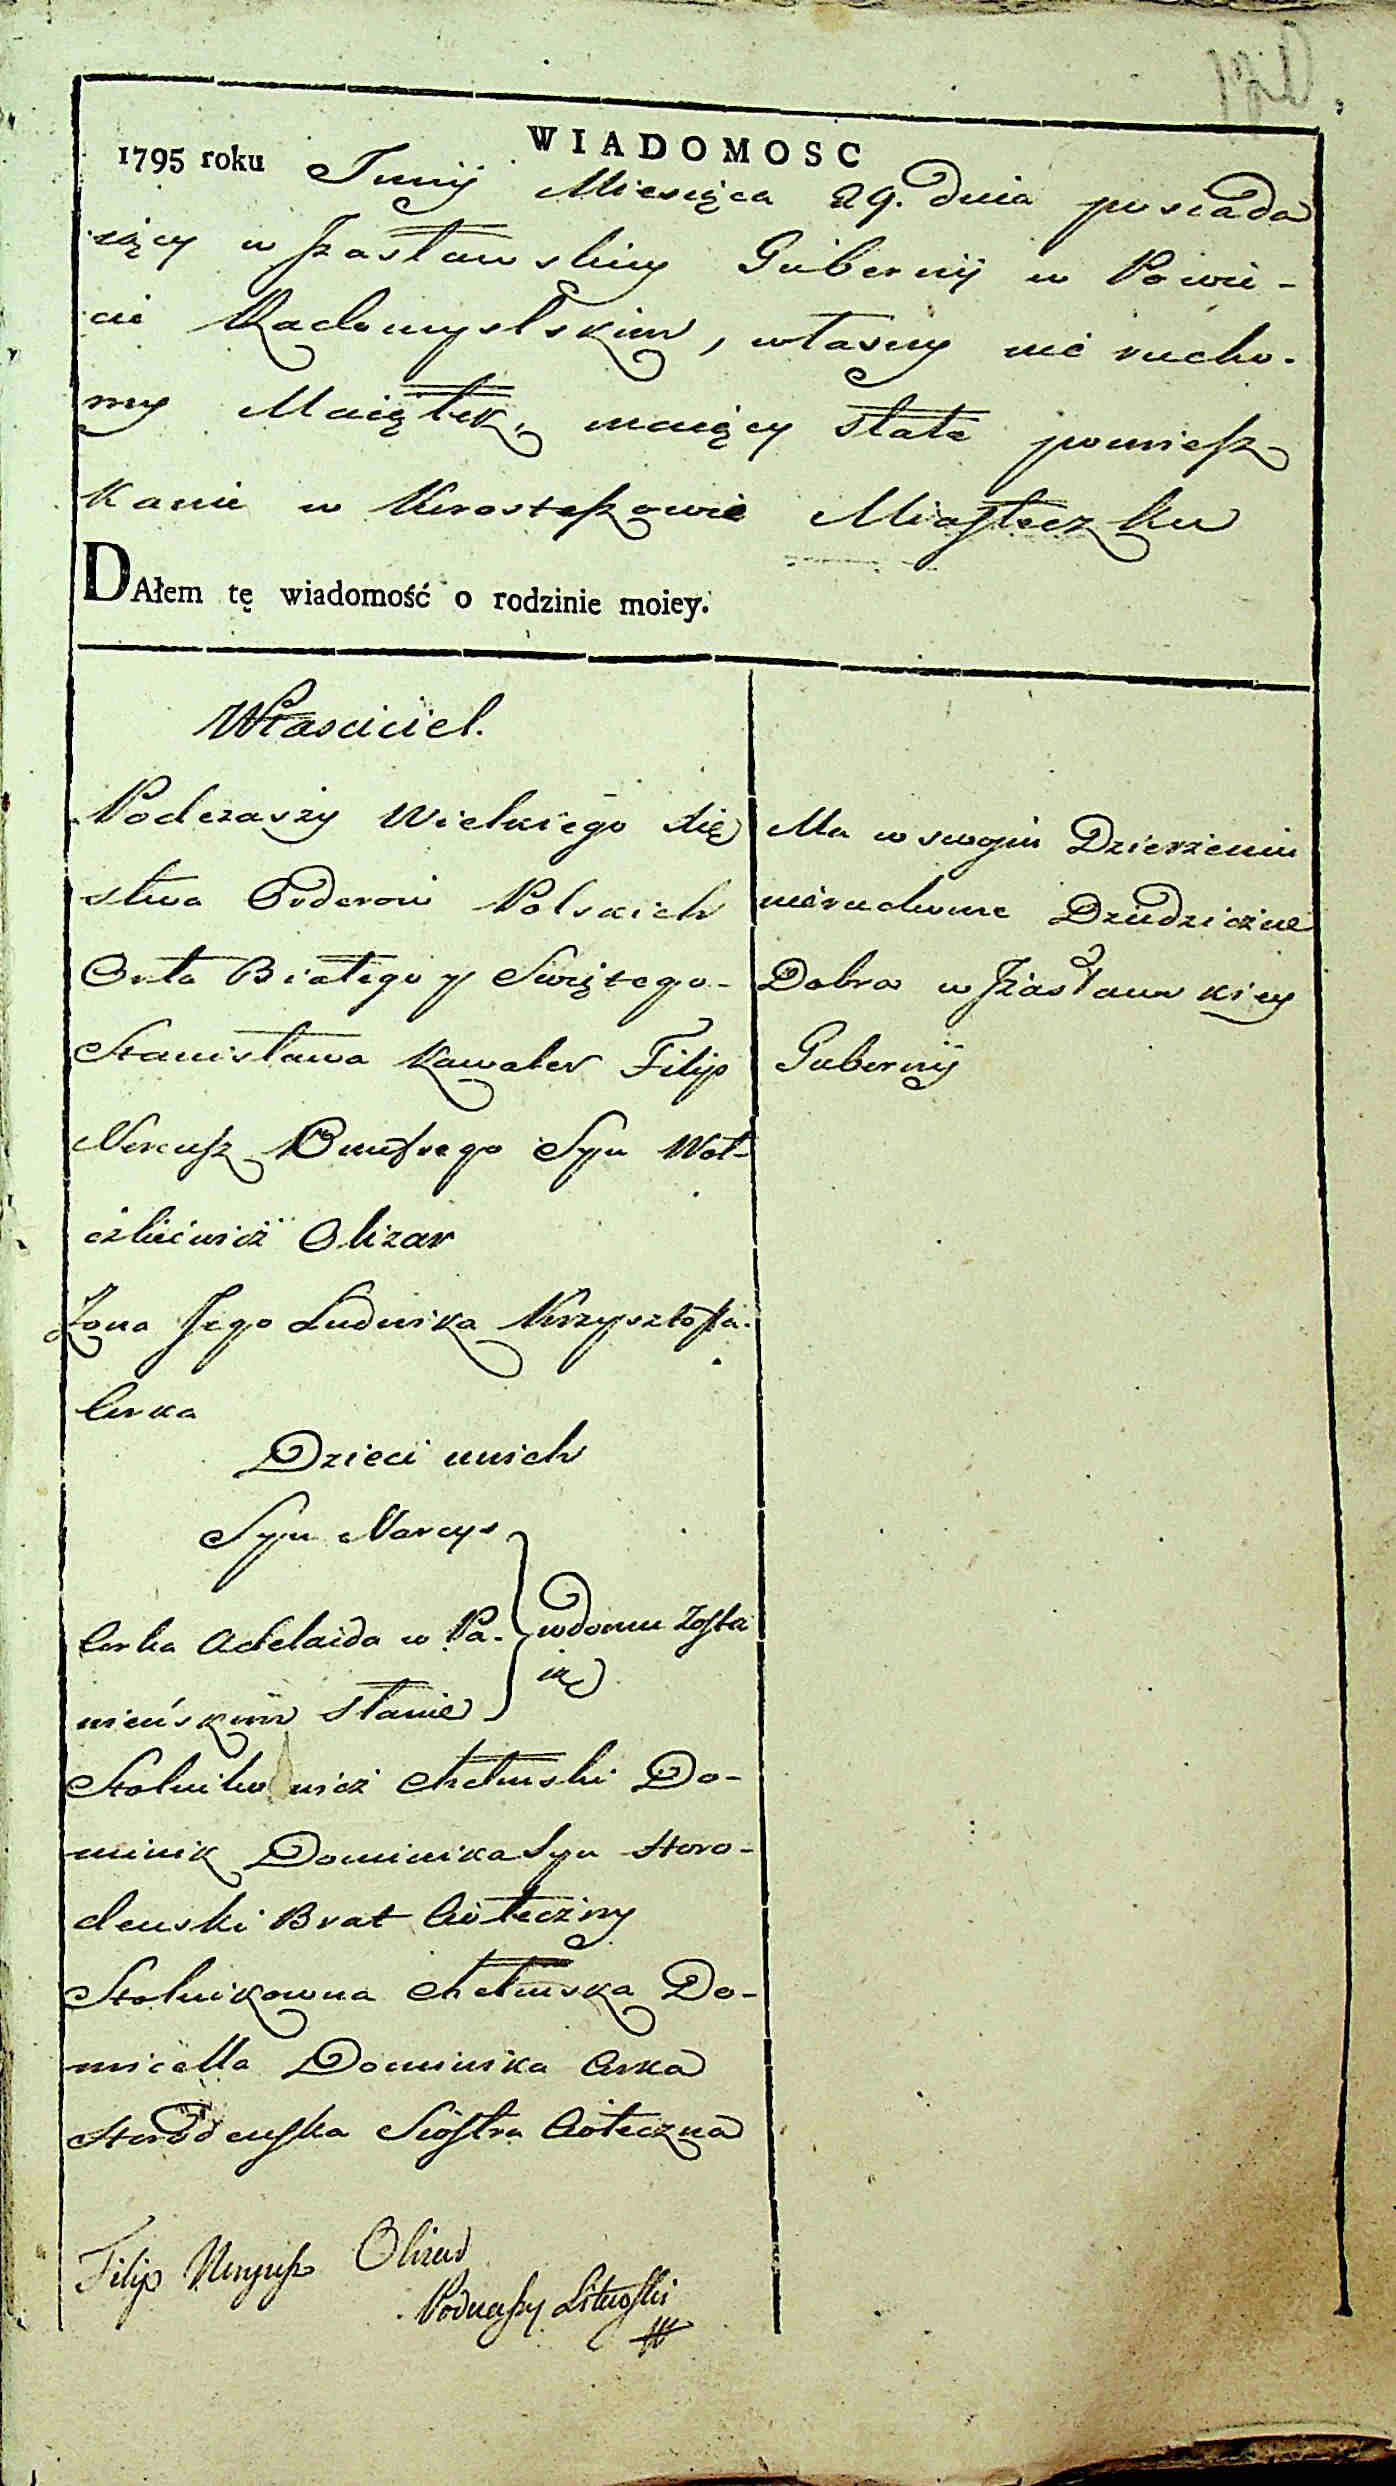 WIADOMOSC
1795 roku Junij Miesięca 29. dnia posiada
iący w Jzasławskiey Gubernij w Powie-
cie Radomyslskim, własny nie rucho-
my Maiątek, maiący stałe pomiesz-
kanie w Korosteszowie Miasteczku
DAłem tę wiadomość o rodzinie moiey.
Własciciel.
Podczaszy Wielkiego Xię
stwa Orderow Polskich
Orła Białego y Swiętego-
Stanisława Kawaler Filip
Nereusz Onufrego Syn Woł-
czkiewicz Olizar
Żona Jego Ludwika Krzysztofa
Corka
Dzieci unich
Syn Narcys
Corka Adelaida w Pa-
nieńskim Stanie
wdomu zosta
ią
Stolnikowicz Chełmski Do-
minik Dominika Syn Horo-
denski Brat Cioteczny
Stolnikowna Chełmska Do-
micella Dominika Corka
Horodenska Siostra Cioteczna
Ma w swoim Dzierżeniu
nieruchome Dziedziczne
Dobra w Jzasławskiey
Gubernij
Filip Nereusz Olizar
Podczaszy Litewski